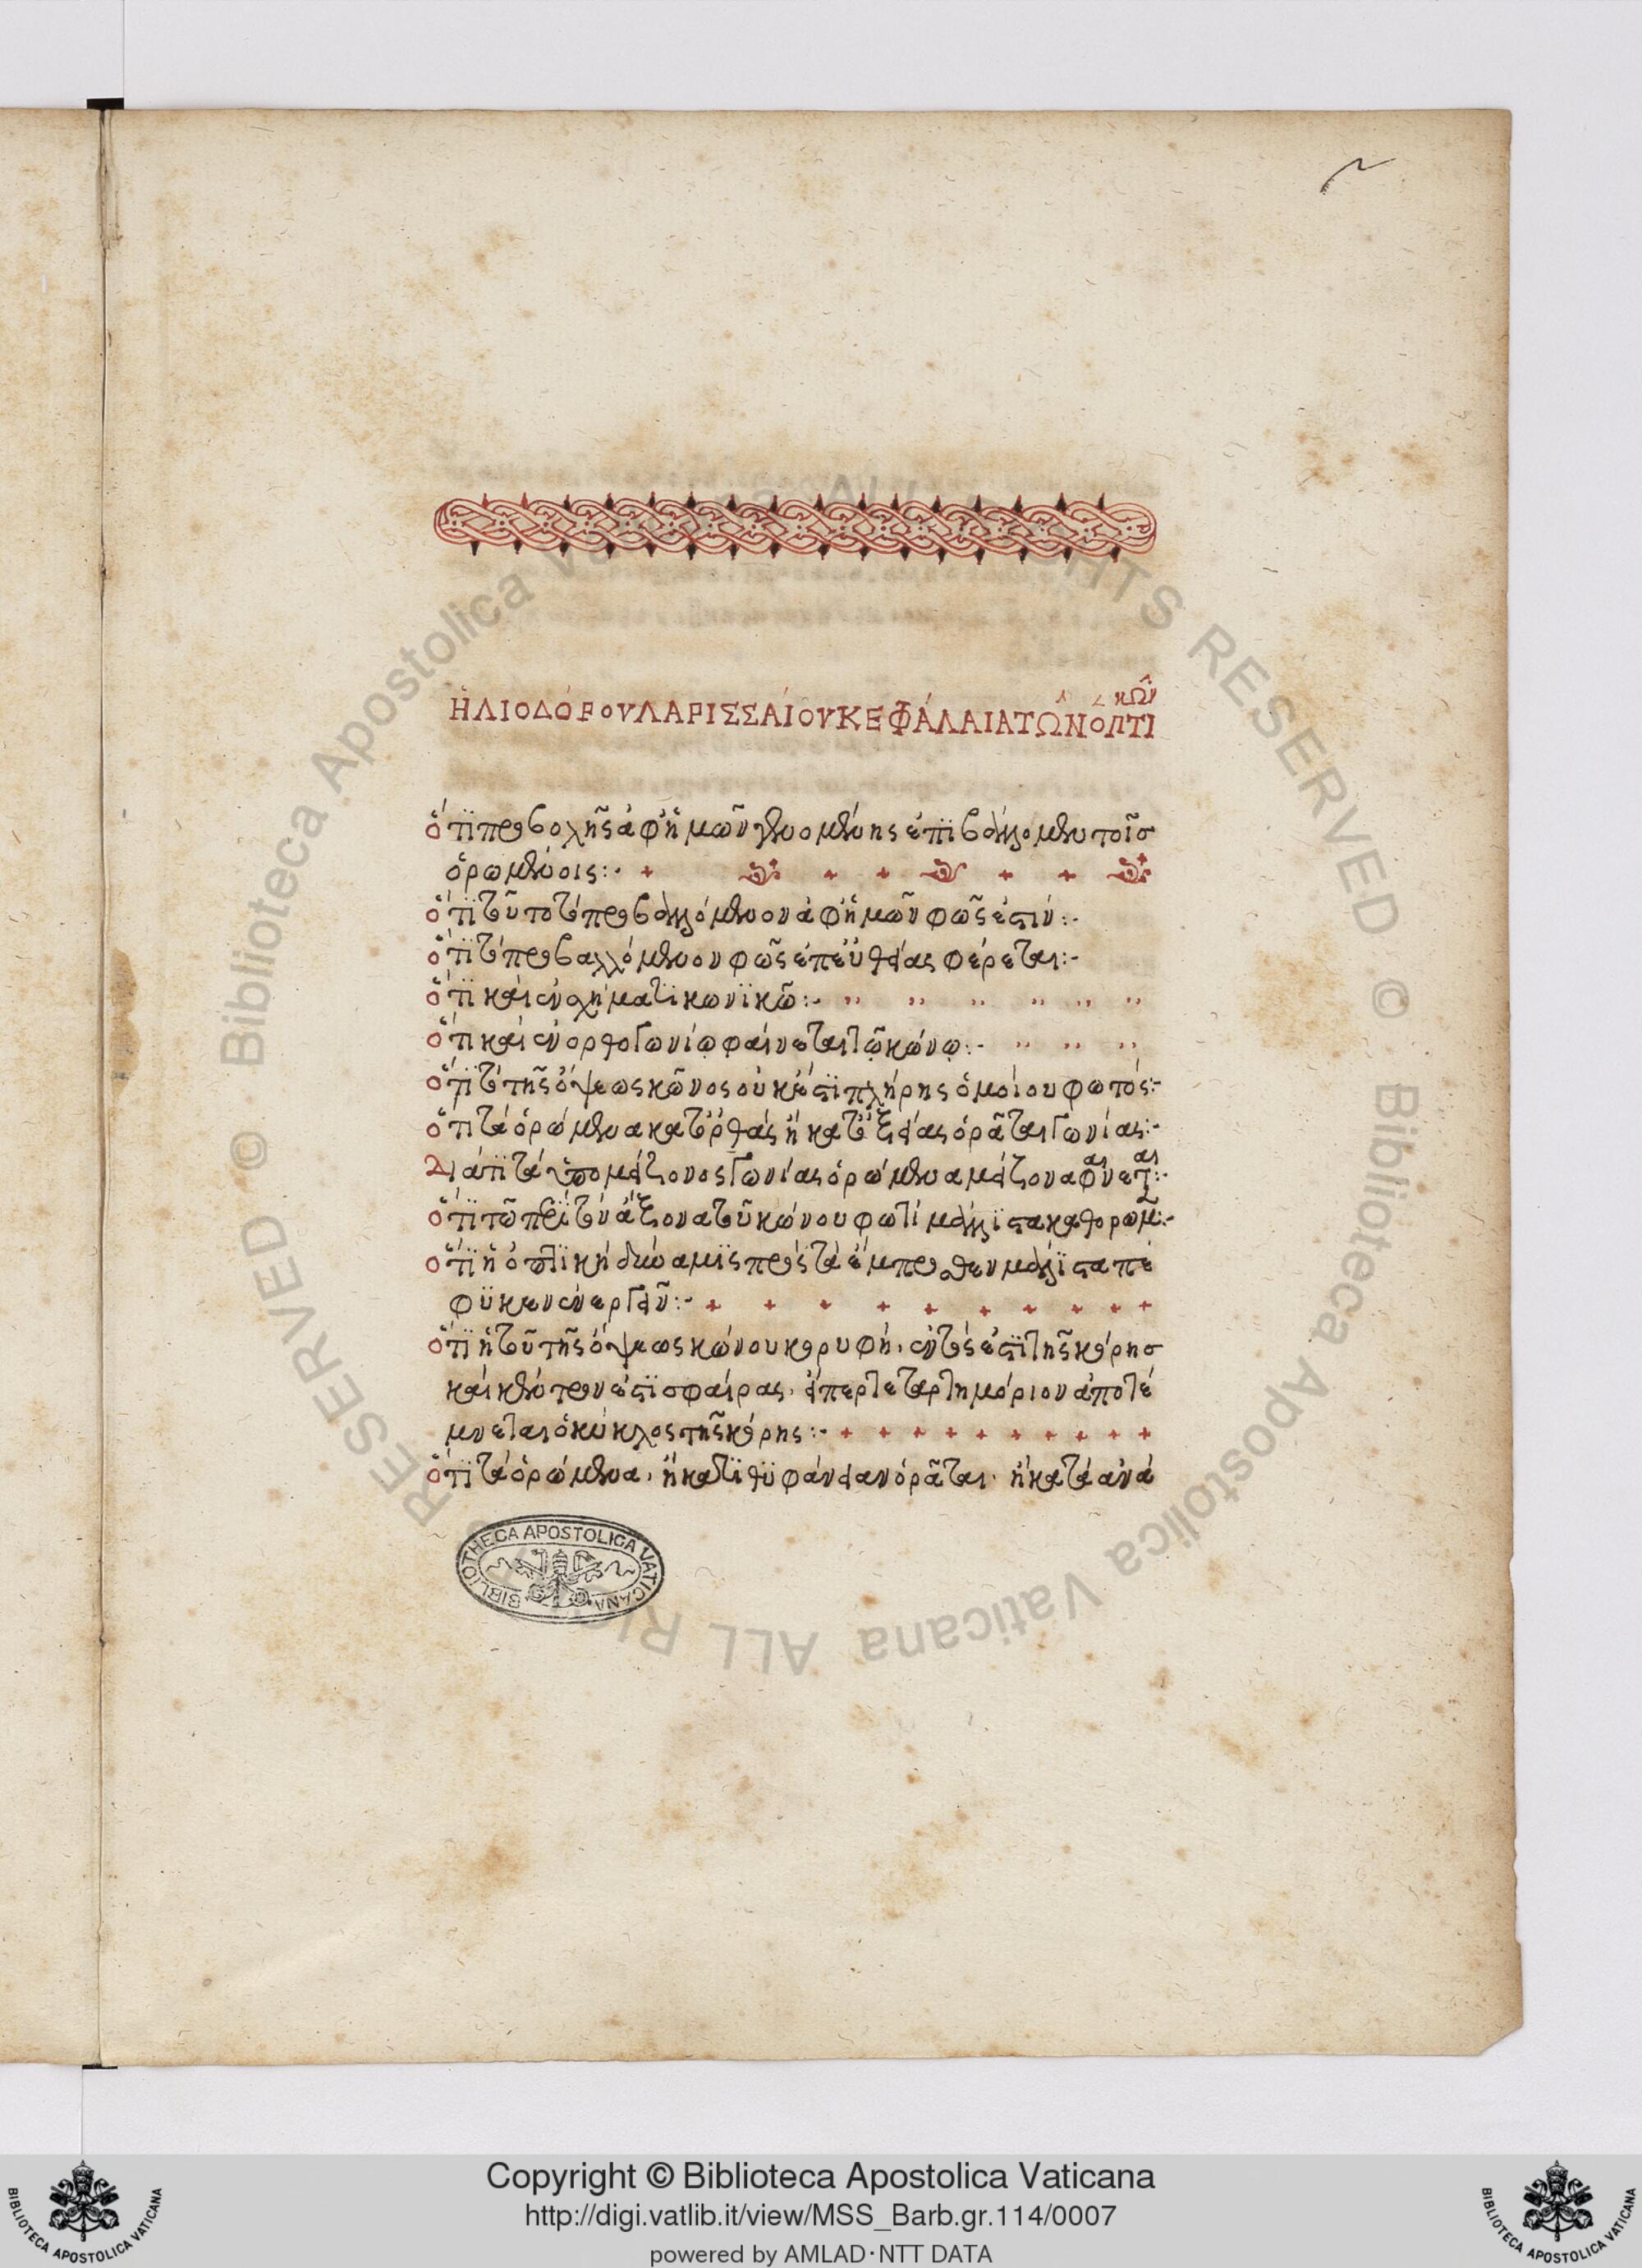 ἩΛΙΟΔΌΡΟΥ ΛΑΡΙΣΣΑΊΟΥ ΚΕΦΆΛΑΙΑ ΤΩ͂Ν ὈΠΤΙκῶν
ὅτι προσβολῆς ἀφ' ἡμῶν γενομένης ἐπιβάλλομεν τοῖσ
ὁρωμένοις:·
ὅτι τοῦτο τὸ προβαλλόμενον ἀφ' ἡμῶν φῶς ἐστίν:·
ὅτι τὸ προβαλλόμενον φῶς ἐπ' εὐθείας φέρεται:·
ὅτι καὶ ἐν σχήματι κωνικῶ:·
ὅτι καὶ ἐν ὀρθογωνίω φαίνεται τῶ κώνω:·
ὅτι ὁ τῆς ὄψεως κῶνος οὐκ ἔστι πλήρης ὁμοίου φωτός:·
ὅτι τὰ ὁρώμενα κατ' ὀρθὰς ἢ κατ' ὀξείας ὁρᾶται γωνίας:·
Διατί τὰ ὑπὸ μείζονος γωνίας ὁρώμενα μείζονα φαίνεται:·
ὅτι τῶ περὶ τὸν ἄξονα τοῦ κώνου φωτὶ μάλιστα καθορῶμεν:·
ὅτι ἡ ὀπτικὴ δύναμις πρὸς τὰ ἔμπροσθεν μάλιστα πέ
φυκεν ἐνεργεῖν:·
ὅτι ἡ τοῦ τῆς ὄψεως κώνου κορυφή, ἐντός ἐστι τῆς κόρησ
καὶ κέντρον ἐστι σφαίρας, ἧσπερ τεταρτημόριον ἀποτέ
μνεται ὁ κύκλος τῆς κόρης:·
ὅτι τὰ ὁρώμενα, ἢ κατ' ἰθυφάνειαν ὁρᾶται, ἢ κατὰ ἀνά
BIBLIOTHECA APOSTOLICA VATICANA
© Biblioteca Apostolica Vaticana ALL RIGHTS RESERVED
© Biblioteca Apostolica Vaticana ALL RIGHTS RESERVED
Copyright © Biblioteca Apostolica Vaticana
http://digi.vatlib.it/view/MSS_Barb.gr.114/0007
powered by AMLAD·NTT DATA
BIBLIOTECA APOSTOLICA VATICANA
BIBLIOTECA APOSTOLICA VATICANA